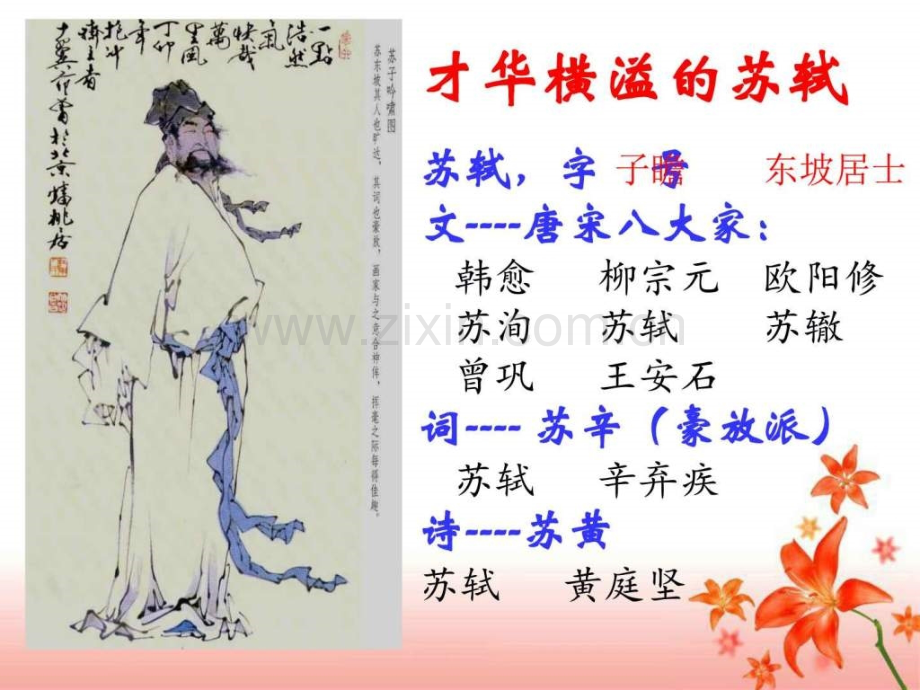 一點
浩然
氣
快哉
萬
里風
丁卯
年
抱冲
齋主者
十翼范曾於
蟠桃居
苏子吟啸图
苏东坡其人也旷达,其词也豪放,画家与之意合神侔,挥毫之际每得佳趣。
才华横溢的苏轼
苏轼,字 子瞻 号 东坡居士
文----唐宋八大家:
韩愈 柳宗元 欧阳修
苏洵 苏轼 苏辙
曾巩 王安石
词---- 苏辛(豪放派)
苏轼 辛弃疾
诗----苏黄
苏轼 黄庭坚
www.zixin.com.cn